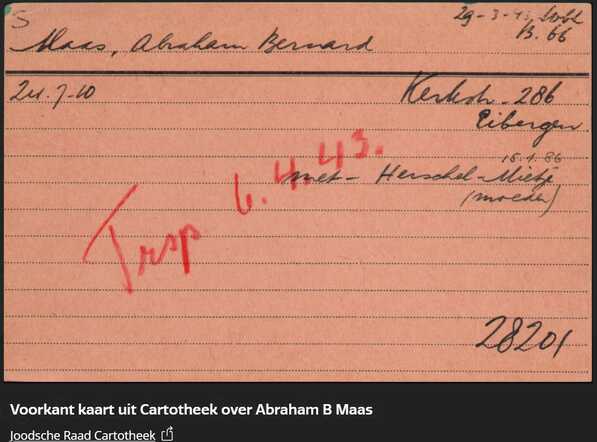 S
29-3-43, Wbk
B. 66
Maas, Abraham Bernard
24.7.10
Kerkstr. 286
Eibergen
15.1.86
met - Herschel-Mietje
(moeder)
Trsp 6.4.43.
28201
Voorkant kaart uit Cartotheek over Abraham B Maas
Joodsche Raad Cartotheek